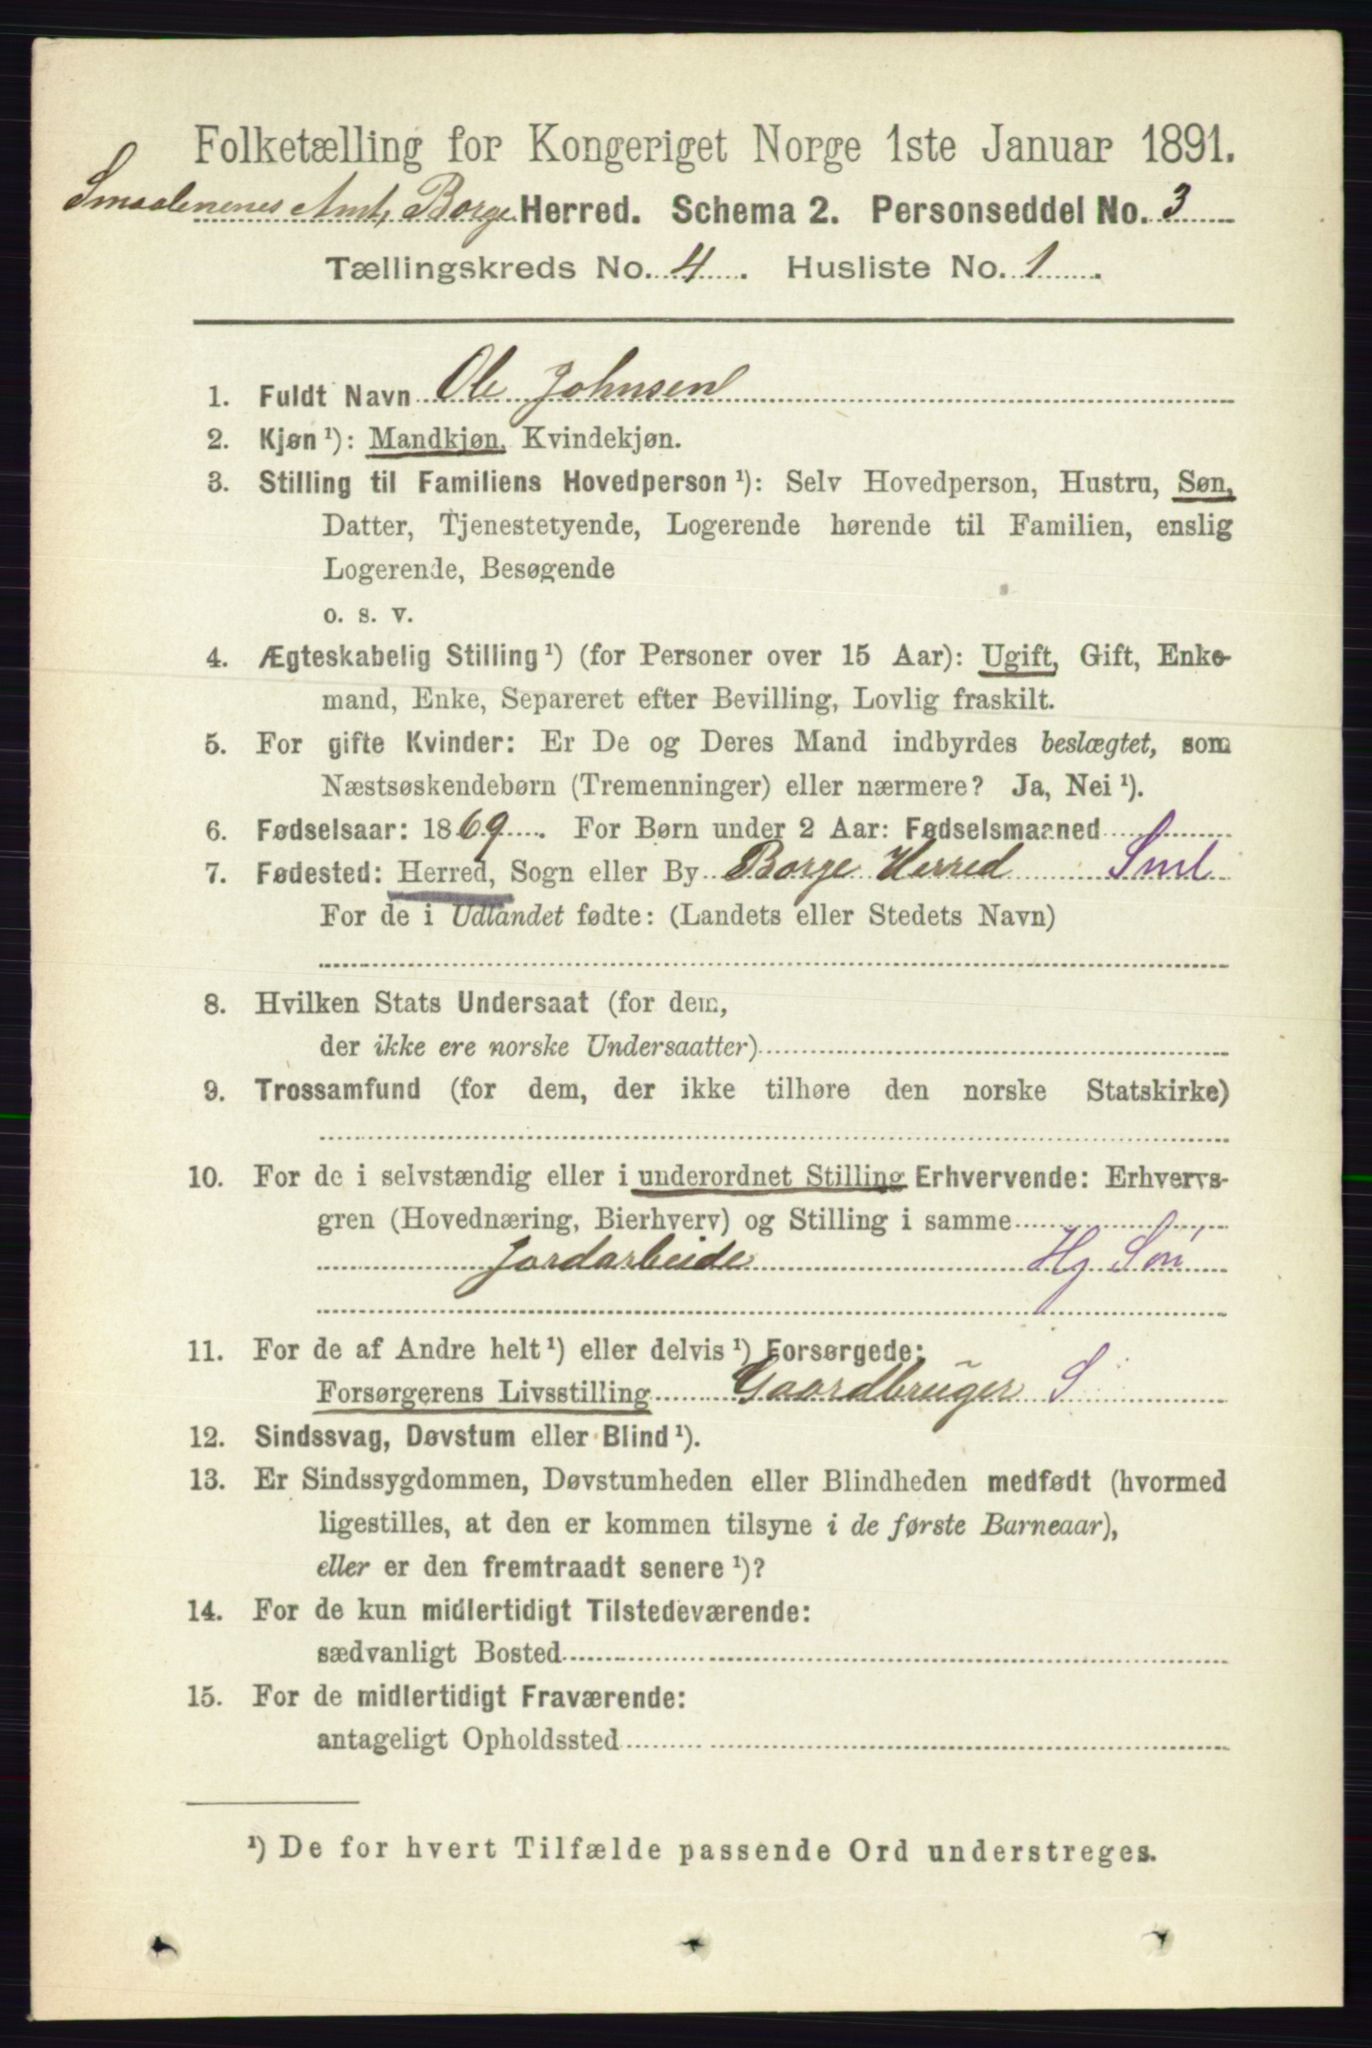 Folketælling for Kongeriget Norge 1ste Januar 1891.
Smaalenenes Amt, Borge Herred. Schema 2. Personseddel No. 3
Tællingskreds No. 4. Husliste No. 1.
1. Fuldt Navn Ole Johnsen
2. Kjøn ¹): Mandkjøn, Kvindekjøn.
3. Stilling til Familiens Hovedperson ¹): Selv Hovedperson, Hustru, Søn,
Datter, Tjenestetyende, Logerende hørende til Familien, enslig
Logerende, Besøgende
o. s. v.
4. Ægteskabelig Stilling ¹) (for Personer over 15 Aar): Ugift, Gift, Enke-
mand, Enke, Separeret efter Bevilling, Lovlig fraskilt.
5. For gifte Kvinder: Er De og Deres Mand indbyrdes beslægtet, som
Næstsøskendebørn (Tremenninger) eller nærmere? Ja, Nei ¹).
6. Fødselsaar: 1869. For Børn under 2 Aar: Fødselsmaaned
7. Fødested: Herred, Sogn eller By Borge Herred Sml
For de i Udlandet fødte: (Landets eller Stedets Navn)
8. Hvilken Stats Undersaat (for dem,
der ikke ere norske Undersaatter)
9. Trossamfund (for dem, der ikke tilhøre den norske Statskirke)
10. For de i selvstændig eller i underordnet Stilling Erhvervende: Erhvervs-
gren (Hovednæring, Bierhverv) og Stilling i samme
Jordarbeide Hj Søn
11. For de af Andre helt ¹) eller delvis ¹) Forsørgede:
Forsørgerens Livsstilling Gaardbruger S
12. Sindssvag, Døvstum eller Blind ¹).
13. Er Sindssygdommen, Døvstumheden eller Blindheden medfødt (hvormed
ligestilles, at den er kommen tilsyne i de første Barneaar),
eller er den fremtraadt senere ¹)?
14. For de kun midlertidigt Tilstedeværende:
sædvanligt Bosted
15. For de midlertidigt Fraværende:
antageligt Opholdssted
¹) De for hvert Tilfælde passende Ord understreges.